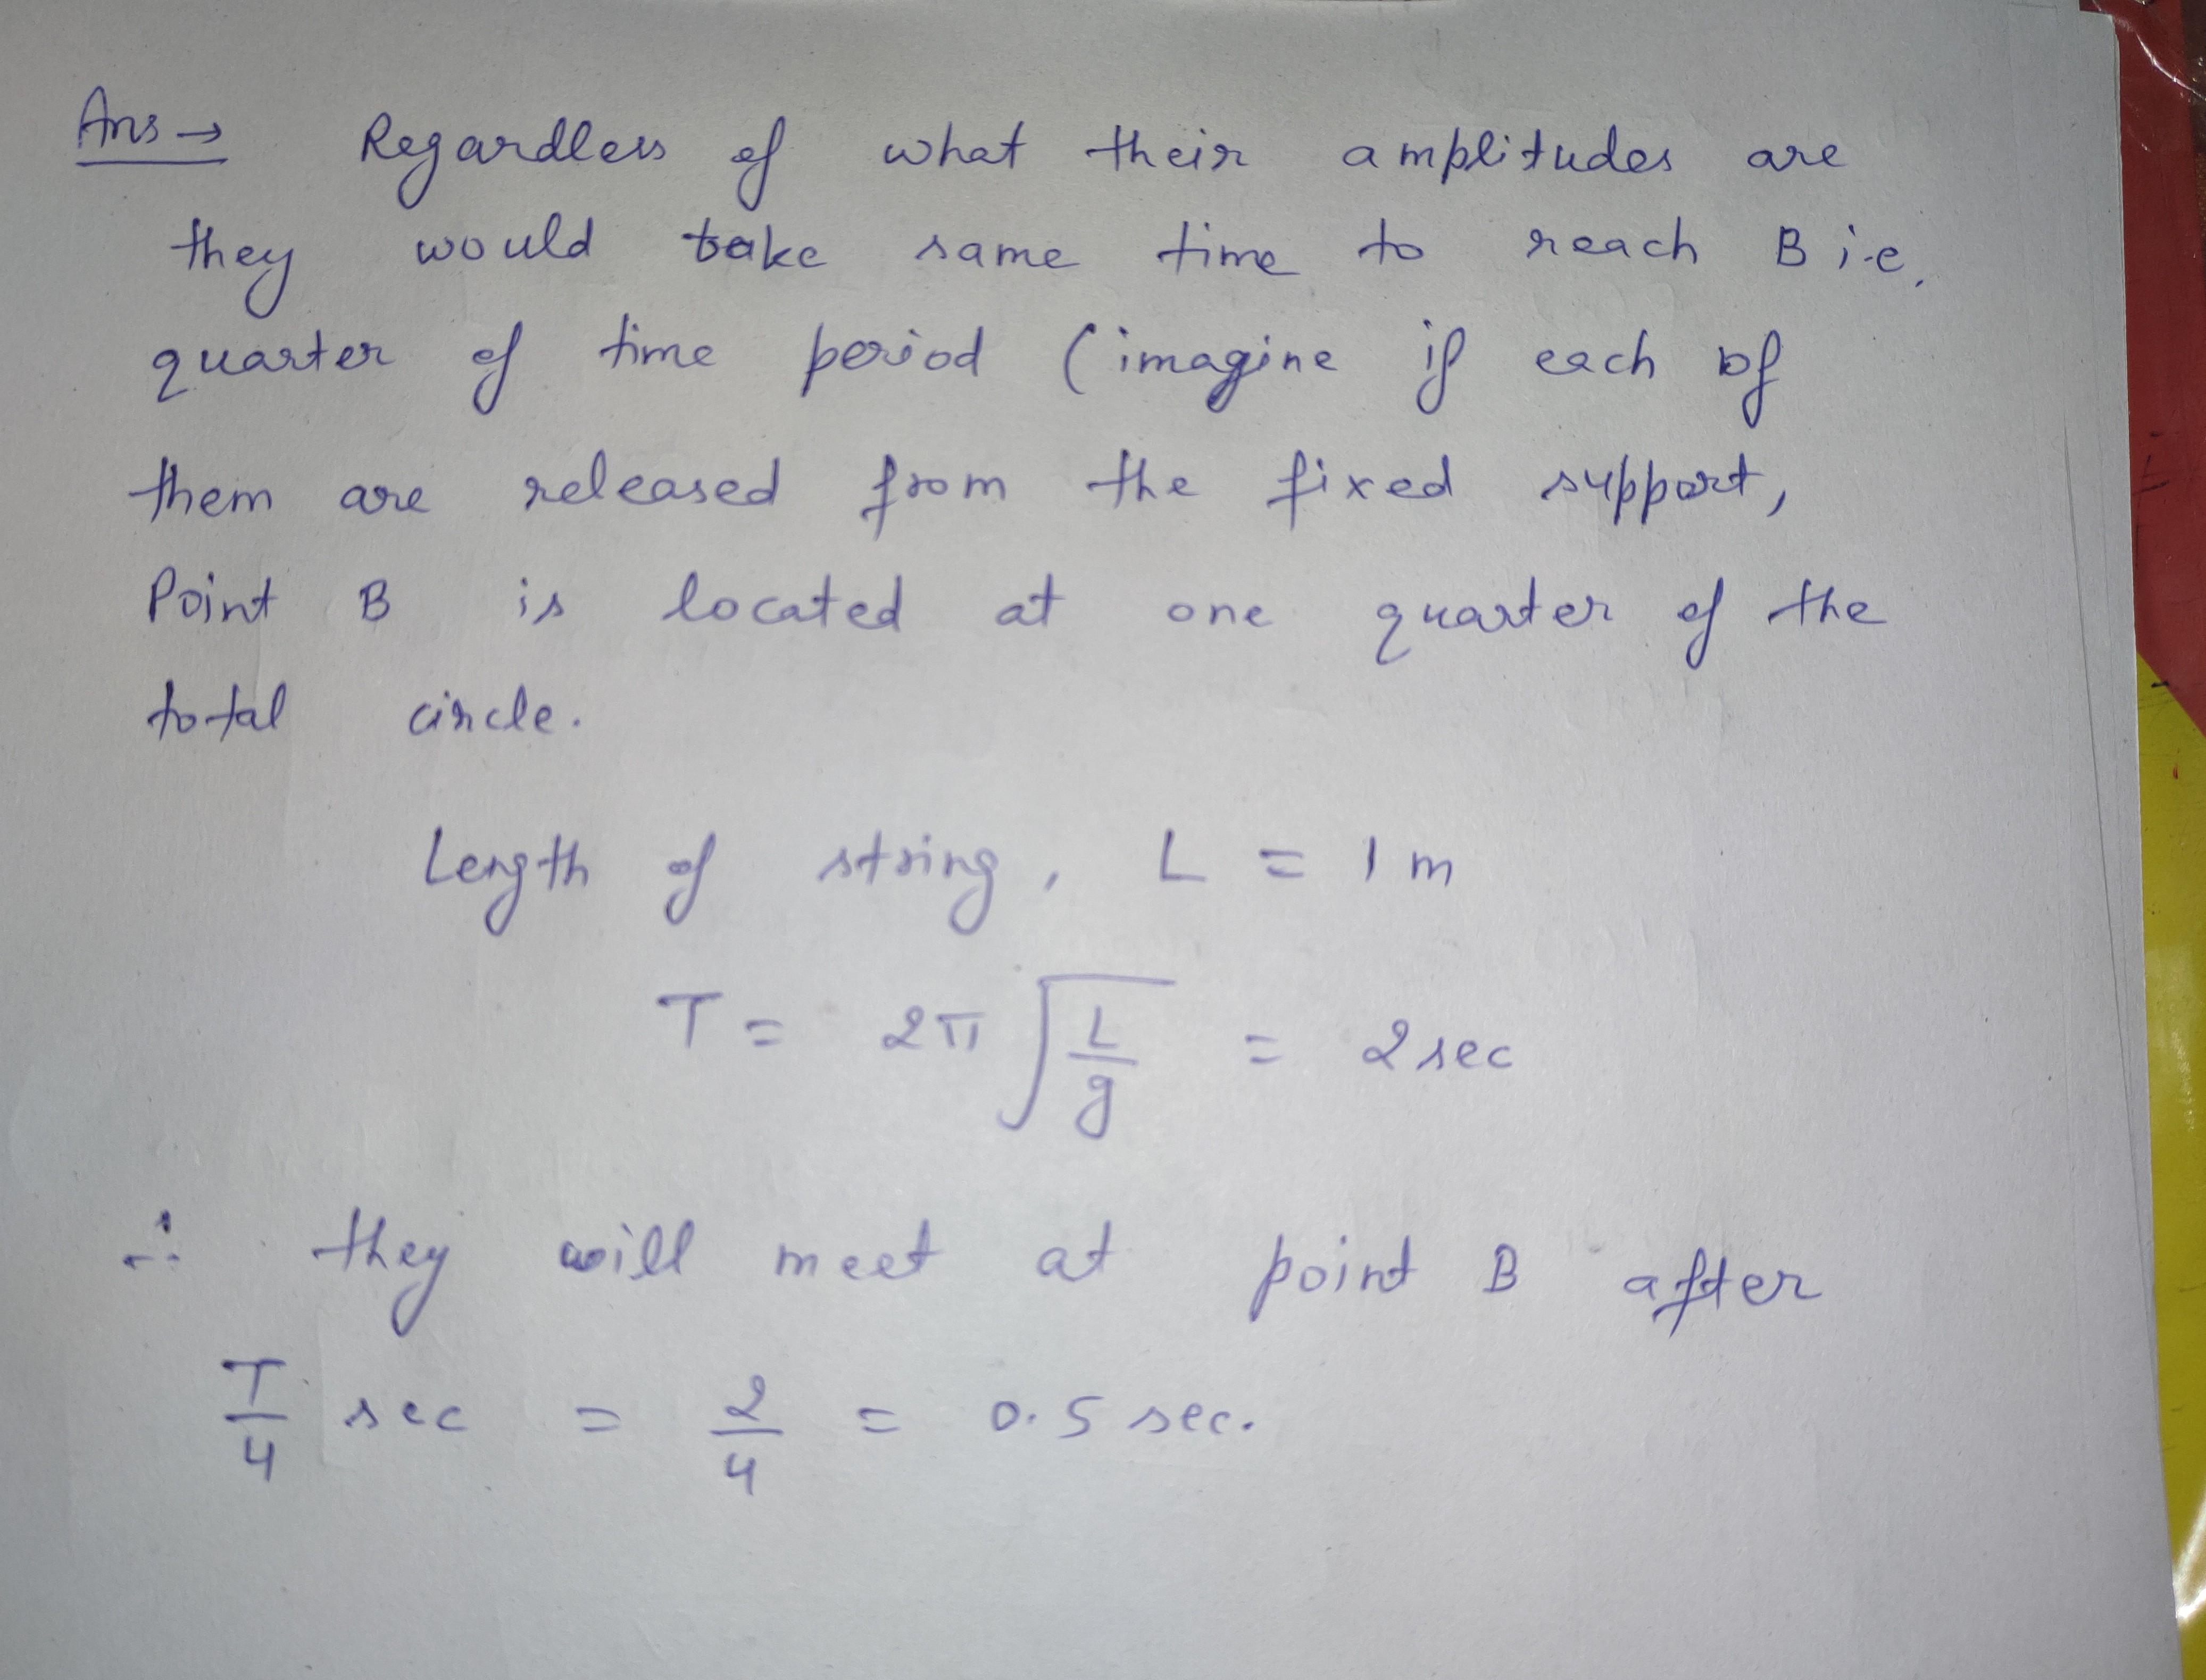 Ans → Regardless of what their amplitudes are
they would take same time to reach B i.e.
quarter of time period (imagine if each of
them are released from the fixed support,
Point B is located at one quarter of the
total circle.
Length of string, L = 1 m
T = 2π √(L/g) = 2 sec
∴ they will meet at point B after
T/4 sec = 2/4 = 0.5 sec.